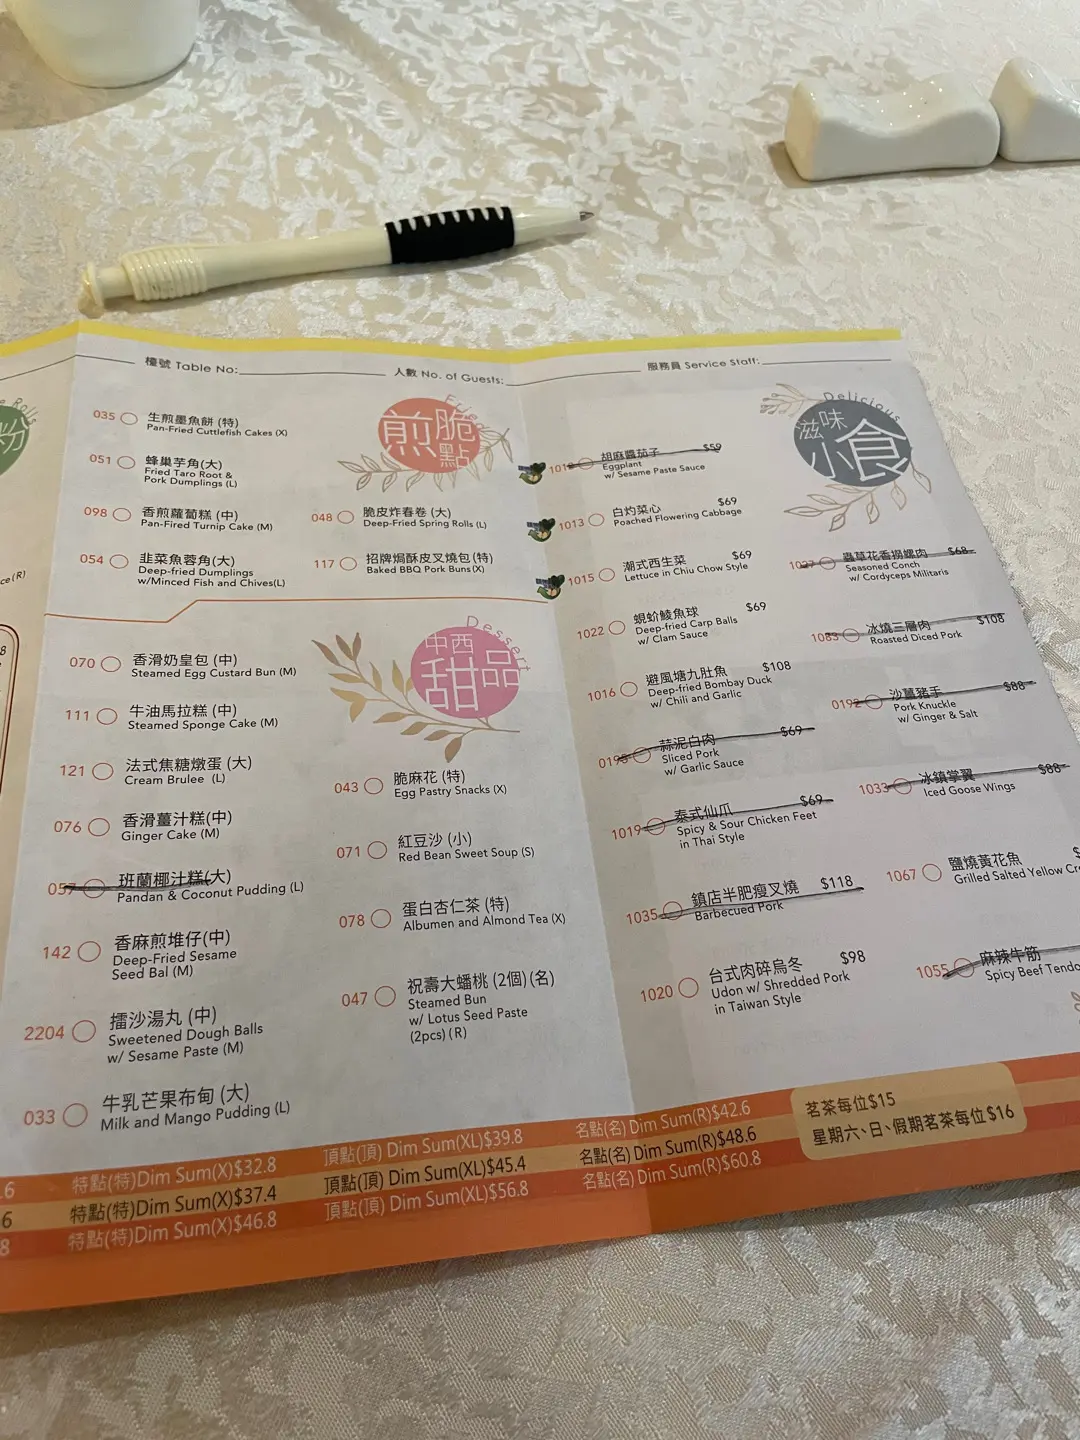 粉
e Rolls
ce(R)
檯號 Table No:
人數 No. of Guests:
服務員 Service Staff:
Fried
煎脆點
035 生煎墨魚餅 (特)
Pan-Fried Cuttlefish Cakes (X)
051 蜂巢芋角(大)
Fried Taro Root &
Pork Dumplings (L)
098 香煎蘿蔔糕 (中)
Pan-Fired Turnip Cake (M)
054 韭菜魚蓉角(大)
Deep-fried Dumplings
w/Minced Fish and Chives(L)
048 脆皮炸春卷 (大)
Deep-Fried Spring Rolls (L)
117 招牌焗酥皮叉燒包(特)
Baked BBQ Pork Buns(X)
Dessert
中西
甜品
070 香滑奶皇包 (中)
Steamed Egg Custard Bun (M)
111 牛油馬拉糕 (中)
Steamed Sponge Cake (M)
121 法式焦糖燉蛋 (大)
Cream Brulee (L)
076 香滑薑汁糕(中)
Ginger Cake (M)
057 班蘭椰汁糕(大)
Pandan & Coconut Pudding (L)
142 香麻煎堆仔(中)
Deep-Fried Sesame
Seed Bal (M)
2204 擂沙湯丸 (中)
Sweetened Dough Balls
w/ Sesame Paste (M)
033 牛乳芒果布甸 (大)
Milk and Mango Pudding (L)
043 脆麻花 (特)
Egg Pastry Snacks (X)
071 紅豆沙 (小)
Red Bean Sweet Soup (S)
078 蛋白杏仁茶 (特)
Albumen and Almond Tea (X)
047 祝壽大蟠桃 (2個)(名)
Steamed Bun
w/ Lotus Seed Paste
(2pcs) (R)
Delicious
滋味
小食
胡麻醬茄子 $59
Eggplant
w/ Sesame Paste Sauce
1013 白灼菜心 $69
Poached Flowering Cabbage
1015 潮式西生菜 $69
Lettuce in Chiu Chow Style
1022 蜆蚧鯪魚球 $69
Deep-fried Carp Balls
w/ Clam Sauce
1016 避風塘九肚魚 $108
Deep-fried Bombay Duck
w/ Chili and Garlic
0198 蒜泥白肉 $69
Sliced Pork
w/ Garlic Sauce
1019 泰式仙爪 $69
Spicy & Sour Chicken Feet
in Thai Style
1035 鎮店半肥瘦叉燒 $118
Barbecued Pork
1020 台式肉碎烏冬 $98
Udon w/ Shredded Pork
in Taiwan Style
1027 蟲草花香撈螺肉 $68
Seasoned Conch
w/ Cordyceps Militaris
1083 冰燒三層肉 $108
Roasted Diced Pork
0192 沙薑豬手 $88
Pork Knuckle
w/ Ginger & Salt
1033 冰鎮掌翼 $88
Iced Goose Wings
1067 鹽燒黃花魚 $
Grilled Salted Yellow Cr
1055 麻辣牛筋
Spicy Beef Tendo
.6 特點(特)Dim Sum(X)$32.8 頂點(頂) Dim Sum(XL)$39.8 名點(名) Dim Sum(R)$42.6
6 特點(特)Dim Sum(X)$37.4 頂點(頂) Dim Sum(XL)$45.4 名點(名) Dim Sum(R)$48.6
8 特點(特)Dim Sum(X)$46.8 頂點(頂) Dim Sum(XL)$56.8 名點(名) Dim Sum(R)$60.8
茗茶每位$15
星期六、日、假期茗茶每位$16